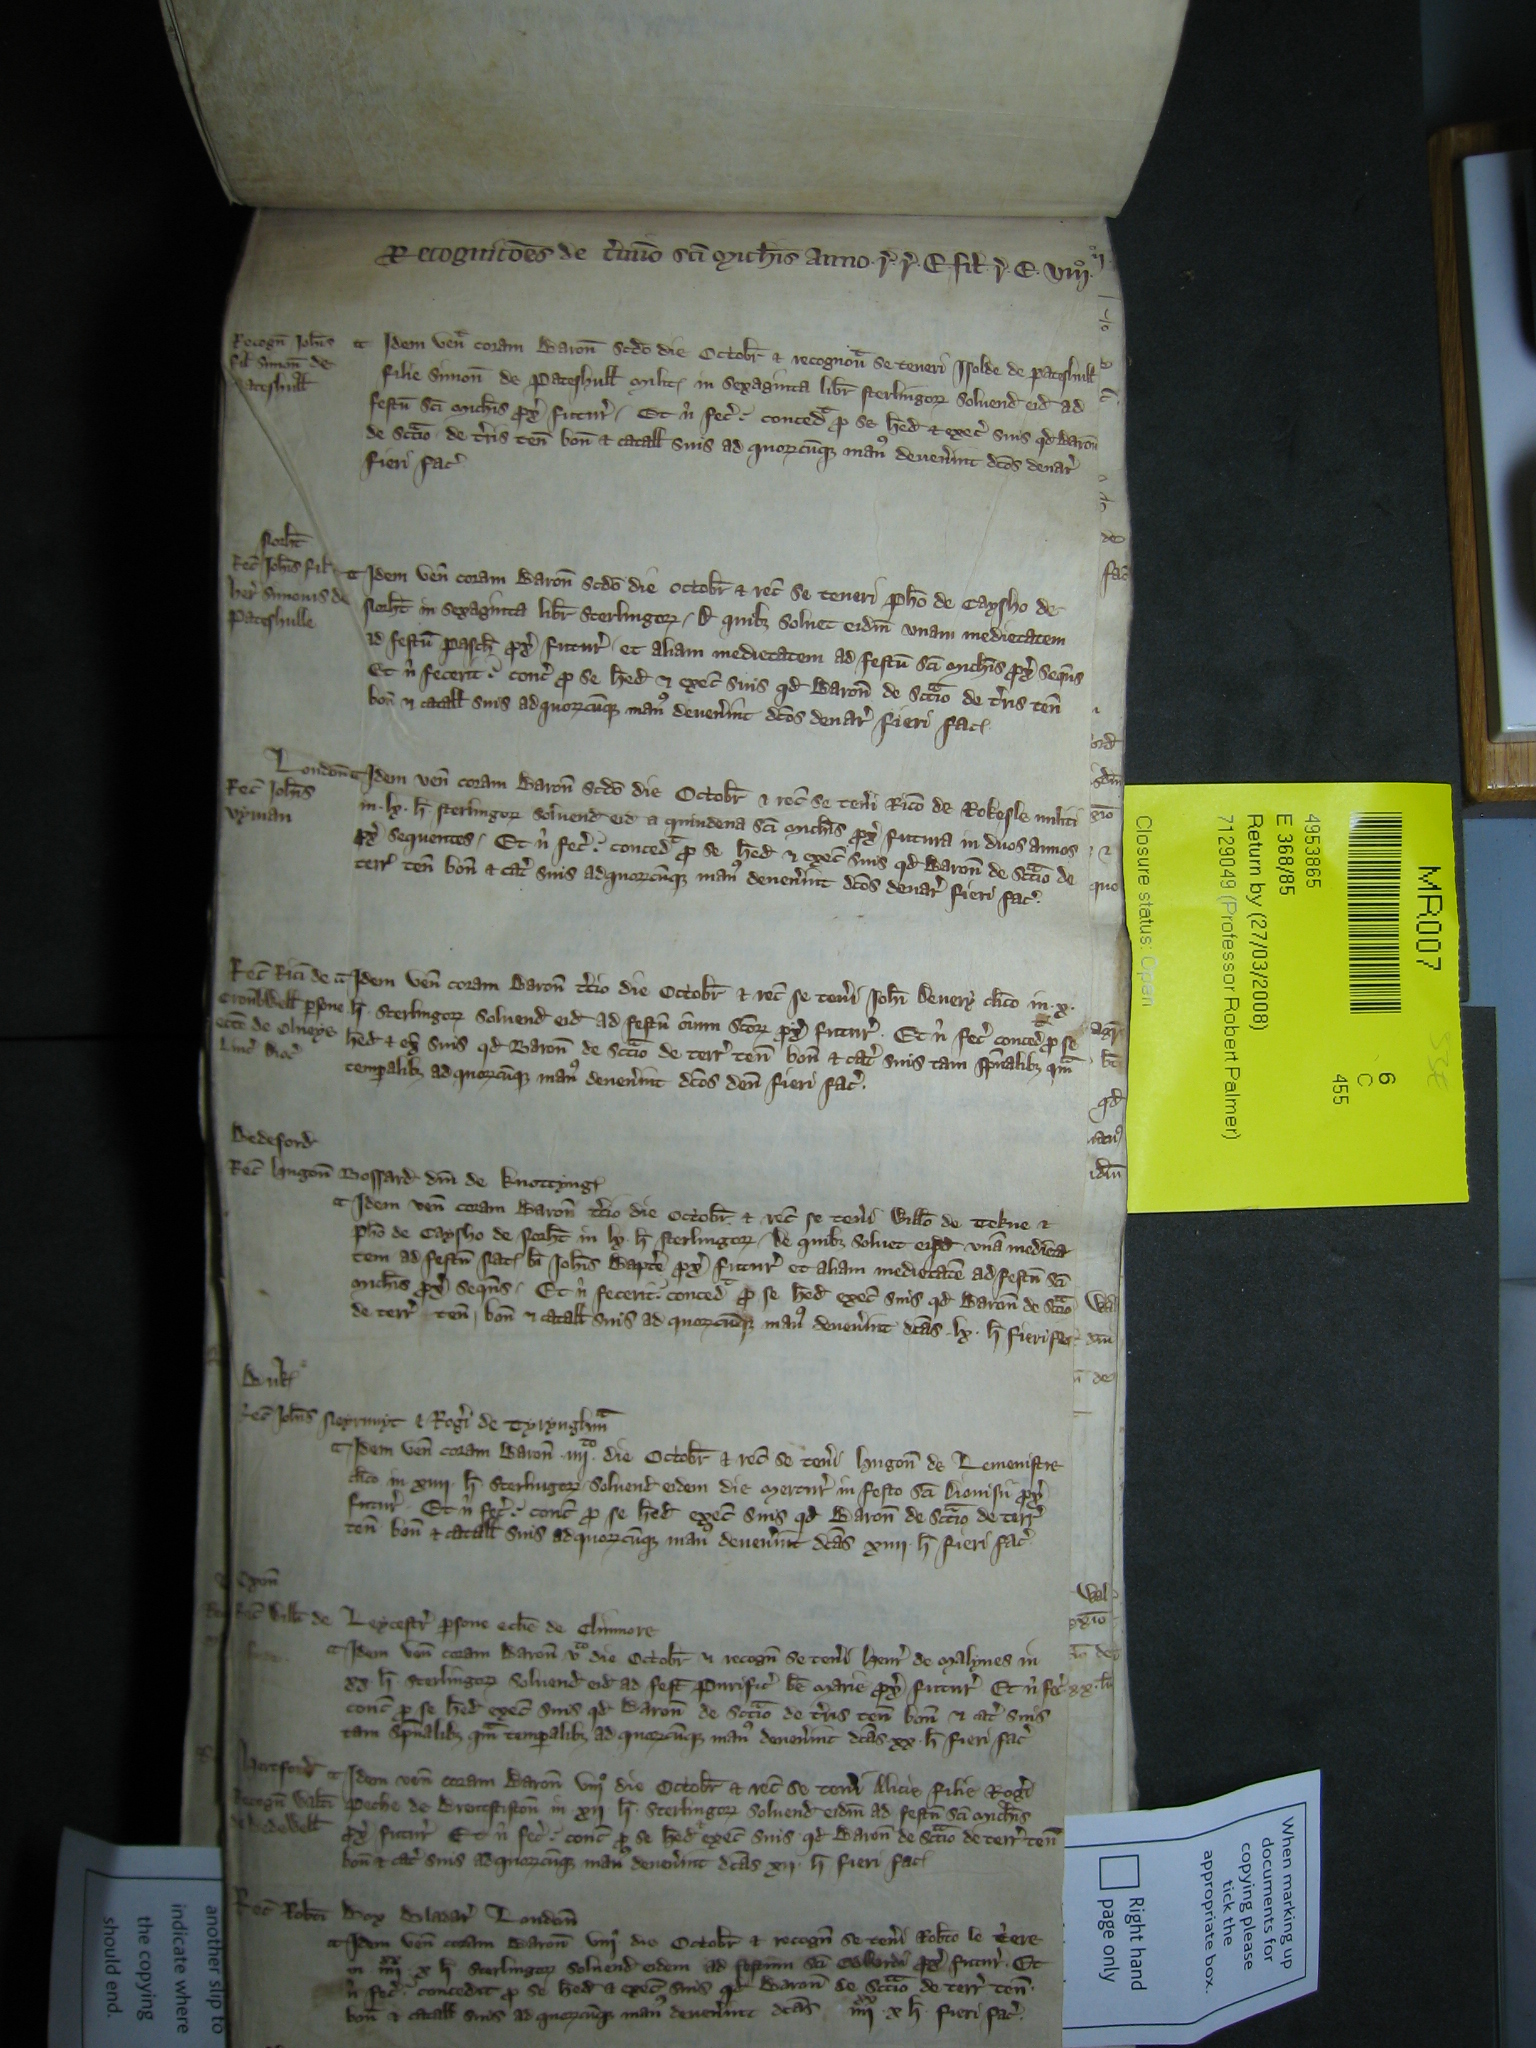 Recognicōes de t'mīo sc̄i Mich̄is anno r̄ r̄ E fil r̄ E viijo
Recogn̄ Joh̄is
fil Simon̄ de
Pateshull
Idem ven̄ coram Baron̄ sc̄do die Octobr̄ & recognou̅ se teneri Isolde de Pateshull
filie Simon̄ de Pateshull milit̄ in sexaginta libr̄ sterlingor̄ soluend eid ad
festū sc̄i Mich̄is p̄x futur̄ Et n̄ fec̄ conced p̄ se hed & exec̄ suis qd Baron̄
de sc̄c̄io de t'ris ten̄ bon̄ & catall suis ad quorcūq̄ man9 deuen'int dc̄os denar̄
fieri fac̄
Norht̄
Rec̄ Joh̄is fil &
her̄ Simonis de
Pateshulle
Idem ven̄ coram Baron̄ sc̄do die Octobr̄ & rec̄ se teneri Ph̄o de Caysho de
Norht̄ in sexaginta libr̄ sterlingor̄ D quib3 soluet eidm̄ vnam medietatem
ad festū Pasch̄ p̄x futur̄ et aliam medietatem ad festū sc̄i Mich̄is p̄x seqn̄s
Et n̄ fecerit conc̄ p̄ se hed & exec̄ suis qd Baron̄ de sc̄c̄io de t'ris ten̄
bon̄ & catall suis ad quorcūq̄ man9 deuen'int dc̄os denar̄ fieri fac̄
London̄
Rec̄ Joh̄is
Vyman
Idem ven̄ coram Baron̄ sc̄do die Octobr̄ & rec̄ se ten'i Ric̄o de Rokesle militi
in lx li sterlingor̄ soluend eid a quindena sc̄i Mich̄is p̄x futura in duos annos
p̄x sequentes Et n̄ fec̄ conced p̄ se hed & exec̄ suis qd Baron̄ de sc̄c̄io de
terr̄ ten̄ bon̄ & cat̄ suis ad quorcūq̄ man9 deuen'int dc̄os denar̄ fieri fac̄
Rec̄ Ric̄i de
Cromb̄well p'sone
ecc̄e de Olneye
Linc̄ dioc̄
Idem ven̄ coram Baron̄ t'cio die Octobr̄ & rec̄ se ten'i Joh̄i Deuery cl'ico in x
li sterlingor̄ soluend eid ad festū Om̄ium Sc̄or̄ p̄x futur̄ Et n̄ fec̄ conced p̄ se
hed & ex̄ suis qd Baron̄ de sc̄c̄io de terr̄ ten̄ bon̄ & cat̄ suis tam sp̄ualib3 qm̄
temp'alib3 ad quorcūq̄ man9 deuen'int dc̄os den̄ fieri fac̄
Bedeford
Rec̄ Hugon̄ Bossard dn̄i de Knottyng
Idem ven̄ coram Baron̄ t'cio die Octobr̄ & rec̄ se ten'i Will̄o de Tekne &
Ph̄o de Caysho de Norht̄ in lx li sterlingor̄ De quib3 soluet eisd vnā medieta
tem ad festū Nat̄ bi Joh̄is Bapt̄e p̄x futur̄ et aliam medietatē ad festū sc̄i
Mich̄is p̄x seqn̄s Et n̄ fecerit conced p̄ se hed exec̄ suis qd Baron̄ de sc̄c̄io
de terr̄ ten̄ bon̄ & catall suis ad quorcūq̄ man9 deuen'int dc̄as lx li fieri fac̄
Buk̄
Rec̄ Joh̄is Neyrnuyt & Rog'i de Tyrynghm̄
Idem ven̄ coram Baron̄ iiijto die Octobr̄ & rec̄ se ten'i Hugon̄ de Lemenistre
cl'ico in xiiij li sterlingor̄ soluend eidem die Mercur̄ in festo sc̄i Dionisij p̄x
futur̄ Et n̄ fec̄ conc̄ p̄ se hed exec̄ suis qd Baron̄ de sc̄c̄io de terr̄
ten̄ bon̄ & catall suis ad quorcūq̄ man9 deuen'int dc̄as xiiij li fieri fac̄
Oxon̄
Rec̄ Will̄i de Leycestr̄ p'sone ecc̄e de Chinnore
Idem ven̄ coram Baron̄ vto die Octobr̄ & recogn̄ se ten'i Henr̄ de Malynes in
xx li sterlingor̄ soluend eid ad fest̄ Purific̄ be Marie p̄x futur̄ Et n̄ fec̄
conc̄ p̄ se hed exec̄ suis qd Baron̄ de sc̄c̄io de t'ris ten̄ bon̄ & cat̄ suis
tam sp̄ualib3 qm̄ temp'alib3 ad quorcūq̄ man9 deuen'int dc̄as xx li fieri fac̄
Hertford
Recogn̄ Walt̄i
de Bedewell
Idem ven̄ coram Baron̄ viijo die Octobr̄ & rec̄ se ten'i Alicie filie Rog'i
Peche de Brentstiston̄ in xij li sterlingor̄ soluend eidm̄ ad festū sc̄i Mich̄is
p̄x futur̄ Et n̄ fec̄ conc̄ p̄ se hed & exec̄ suis qd Baron̄ de sc̄c̄io de terr̄ ten̄
bon̄ & cat̄ suis ad quorcūq̄ man9 deuen'int dc̄as xij li fieri fac̄
Rec̄ Rob̄ti Box Bladar̄ London̄
Idem ven̄ coram Baron̄ viijo die Octobr̄ & recogn̄ se ten'i Rob̄to le
in iiijxx x li sterlingor̄ soluend eidem ad festum sc̄i Edwardi p̄x futur̄ Et
n̄ fec̄ concedit p̄ se hed & exec̄ suis qd Baron̄ de sc̄c̄io de terr̄ ten̄
bon̄ & catall suis ad quorcūq̄ man9 deuen'int dc̄as iiijxx x li fieri fac̄
MR007
4953865
E 368/85
Return by (27/03/2008)
7129049 (Professor Robert Palmer)
Closure status: Open
6
C
455
When marking up
documents for
copying please
tick the
appropriate box.
Right hand
page only
another slip to
indicate where
the copying
should end.